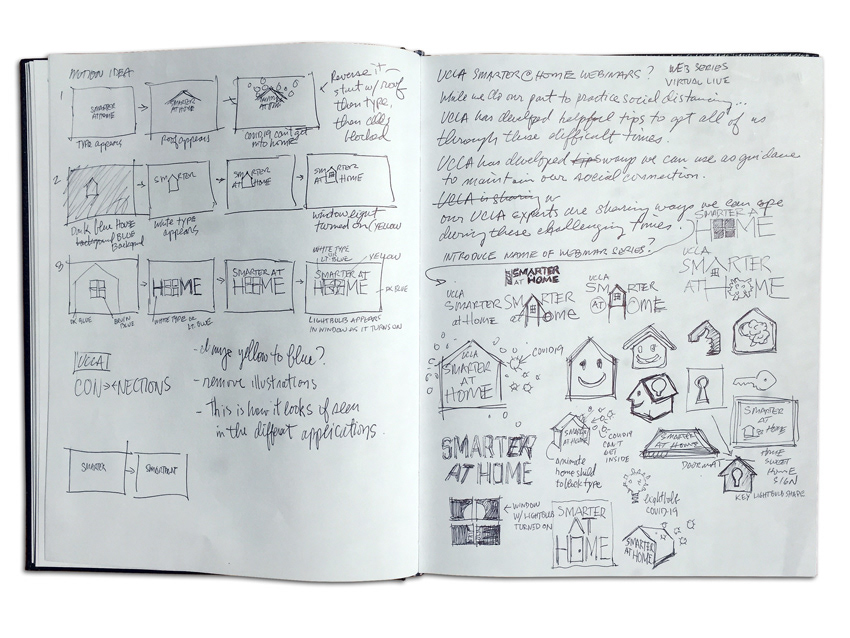 MOTION IDEA
1
SMARTER
AT HOME
TYPE appears
SMARTER
AT HOME
Roof appears
SMARTER
AT HOME
COVID19 can't get
into home
Reverse it
start w/ roof
then type,
then
blocked
2
Dark blue HOUSE
background BLUE
SM
white type
appears
SMARTER
AT HOME
SMARTER
AT HOME
window light
turned on (YELLOW)
3
DK BLUE
BLUE
HOME
WHITE TYPE
LT. BLUE
SMARTER AT
HOME
WHITE TYPE
LT BLUE
YELLOW
SMARTER AT
HOME
DK BLUE
LIGHTBULB APPEARS
IN WINDOW AS IT TURNS ON
UCLA
CON→←NECTIONS
- change yellow to blue?
- remove illustrations
- This is how it looks if seen
in the different applications.
SMARTER
UCLA SMARTER@HOME WEBINARS?
WEB SERIES
VIRTUAL LIVE
While we do our part to practice social distancing...
UCLA has developed helpful tips to get all of us
through these difficult times.
UCLA has developed tips ways we can use as guidance
to maintain our social connection.
UCLA is sharing
our UCLA experts are sharing ways we can cope
during these challenging times.
SMARTER AT
HOME
INTRODUCE NAME OF WEBINAR SERIES?
UCLA
SMARTER
AT HOME
SMARTER
AT HOME
UCLA
SMARTER
at Home
SMARTER
at Home
UCLA
SMARTER
AT HOME
UCLA
SMARTER
AT
HOME
COVID19
SMARTER
AT HOME
SMARTER
animate
home shield
to block type
COVID19
CAN'T
GET
INSIDE
SMARTER
AT HOME
DOORMAT
SMARTER
AT
HOME
HOME
SWEET
HOME
SIGN
KEY LIGHTBULB SHAPE
WINDOW
W/ LIGHTBULB
TURNED ON
SMARTER
AT
HOME
lightbulb
COVID-19
SMARTER
AT
HOME